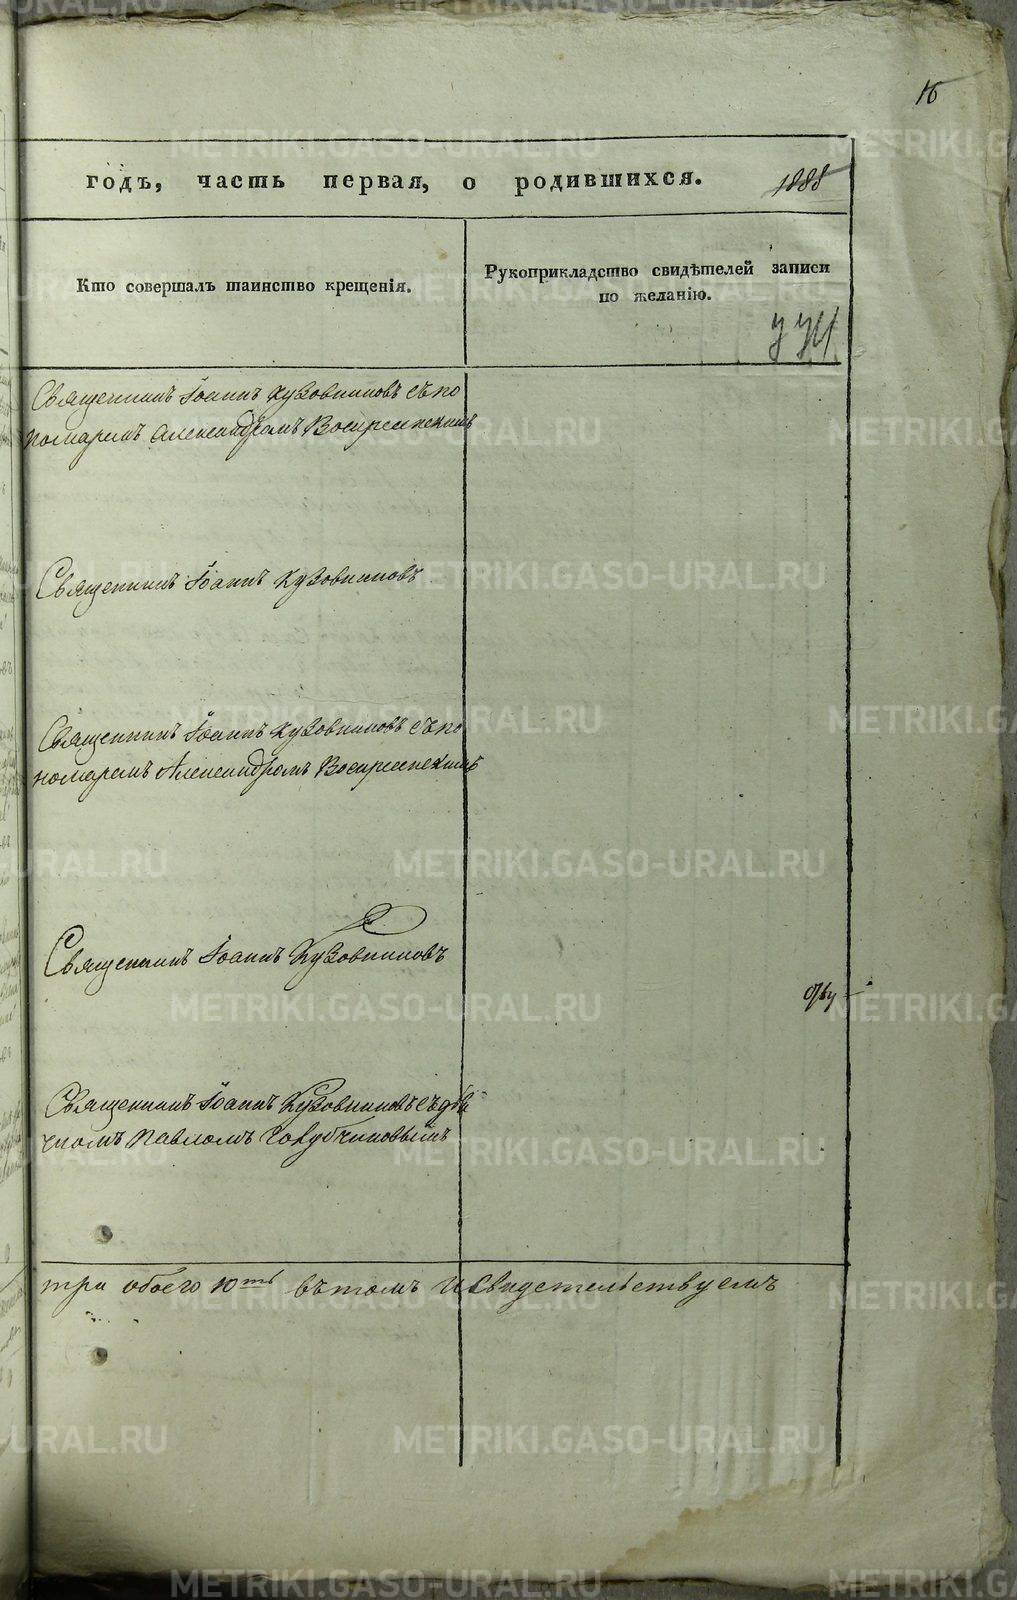 16
годъ, часть первая, о родившихся. 1888
Кто совершалъ таинство крещенія.
Рукоприкладство свидѣтелей записи
по желанію.
Священникъ Іоаннъ Кузовниковъ съ по
номаремъ Александромъ Воскресенскимъ
Священникъ Іоаннъ Кузовниковъ
Священникъ Іоаннъ Кузовниковъ съ по
номаремъ Александромъ Воскресенскимъ
Священникъ Іоаннъ Кузовниковъ
Священникъ Іоаннъ Кузовниковъ съ дья
чкомъ Павломъ Голубчиковымъ
три обоего 10ть въ томъ и свидетельствуемъ
METRIKI.GASO-URAL.RU